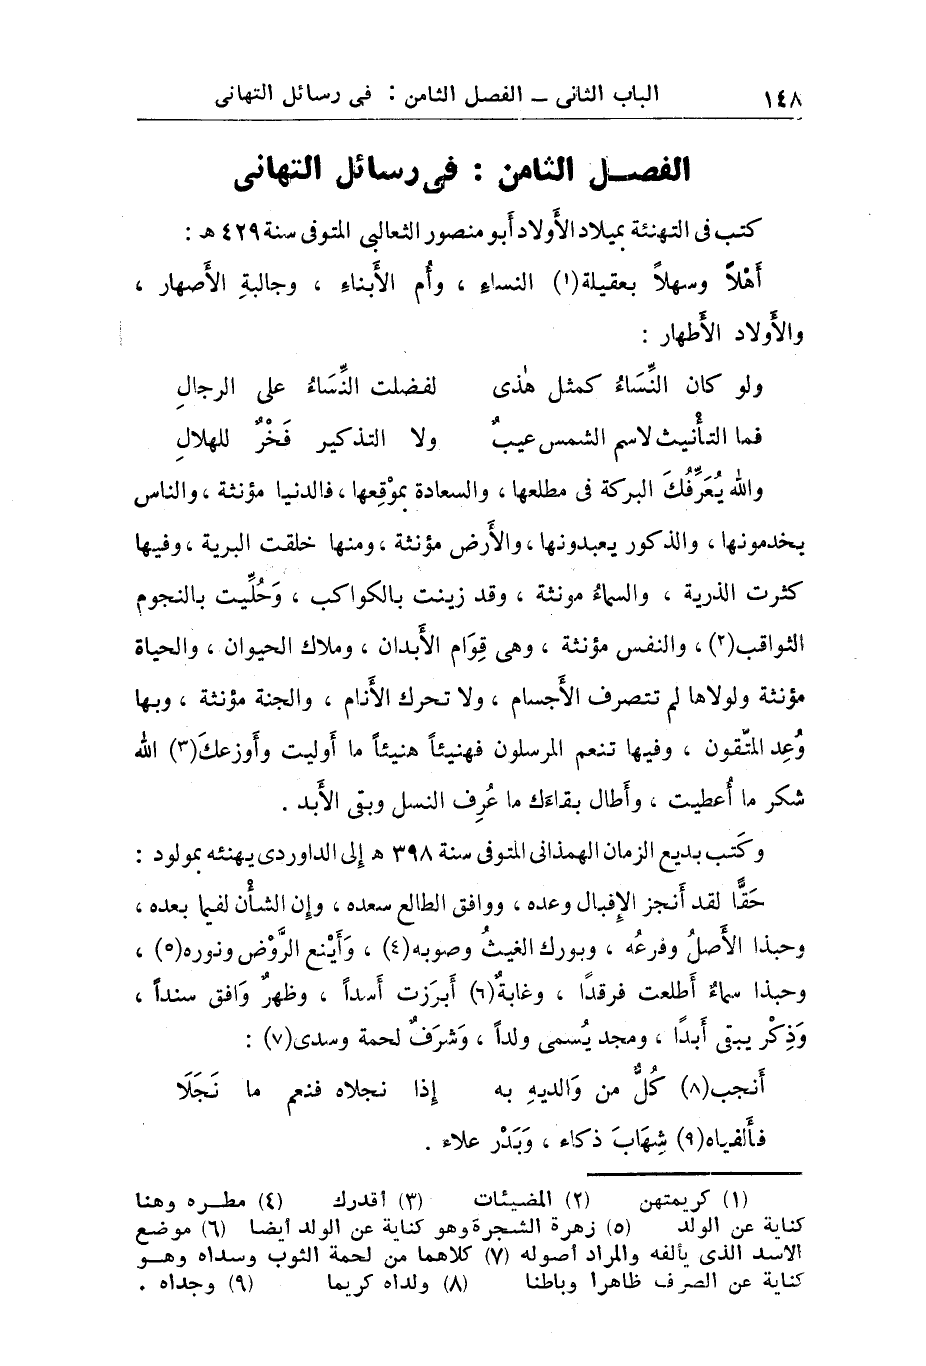 ١٤٨ الباب الثانى ــ الفصل الثامن : فى رسائل التهانى
الفصــل الثامن : فى رسائل التهانى
كتب فى التهنئة بميلاد الأَولاد أَبو منصور الثعالبى المتوفى سنة ٤٢٩ هـ :
أَهْلاً وسهلاً بعقيلة(١) النساءِ ، وأُم الأَبناءِ ، وجالبةِ الأَصهار ،
والأَولاد الأَطهار :
ولو كان النِّسَاءُ كمثل هٰذى لفضلت النِّسَاءُ على الرجالِ
فما التأْنيث لاسم الشمس عيبٌ ولا التذكير فَخْرٌ للهلالِ
والله يُعَرِّفُكَ البركة فى مطلعها ، والسعادة بموْقِعها ، فالدنيا مؤنثة ، والناس
يخدمونها ، والذكور يعبدونها ، والأَرض مؤنثة ، ومنها خلقت البرية ، وفيها
كثرت الذرية ، والسماءُ مونثة ، وقد زينت بالكواكب ، وَحُلِّيت بالنجوم
الثواقب(٢) ، والنفس مؤنثة ، وهى قِوَام الأَبدان ، وملاك الحيوان ، والحياة
مؤنثة ولولاها لم تتصرف الأَجسام ، ولا تحرك الأَنام ، والجنة مؤنثة ، وبها
وُعِد المتّقون ، وفيها تنعم المرسلون فهنيئاً هنيئاً ما أَوليت وأَوزعكَ(٣) الله
شكر ما أُعطيت ، وأَطال بقاءَك ما عُرِف النسل وبقى الأَبد .
وكَتب بديع الزمان الهمذانى المتوفى سنة ٣٩٨ هـ إِلى الداوردى يهنئه بمولود :
حَقًّا لقد أَنجز الإِقبال وعده ، ووافق الطالع سعده ، وإِن الشأْن لفيما بعده ،
وحبذا الأَصلُ وفرعُه ، وبورك الغيثُ وصوبه(٤) ، وَأَيْنع الرَّوْض ونوره(٥) ،
وحبذا سماءٌ أَطلعت فرقدًا ، وغابةٌ(٦) أَبرَزت أَسداً ، وظهرٌ وَافق سنداً ،
وَذِكْر يبقى أَبدًا ، ومجد يُسمى ولداً ، وَشرَفٌ لحمة وسدى(٧) :
أَنجب(٨) كُلٌّ من وَالديهِ به إِذا نجلاه فنعم ما نَجَلَا
فأَلفياه(٩) شِهَابَ ذكاء ، وَبَدْر علاء .
(١) كريمتهن (٢) المضيئات (٣) أقدرك (٤) مطـره وهنا
كناية عن الولد (٥) زهرة الشجرة وهو كناية عن الولد أيضا (٦) موضع
الاسد الذى يألفه والمراد أصوله (٧) كلاهما من لحمة الثوب وسداه وهــو
كناية عن الصرف ظاهرا وباطنا (٨) ولداه كريما (٩) وجداه .